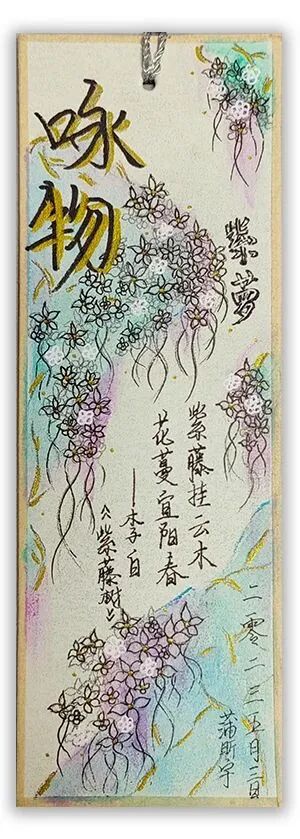 咏物
紫萝
紫藤挂云木
花蔓宜阳春
——李白
《紫藤树》
二零二三五月二日